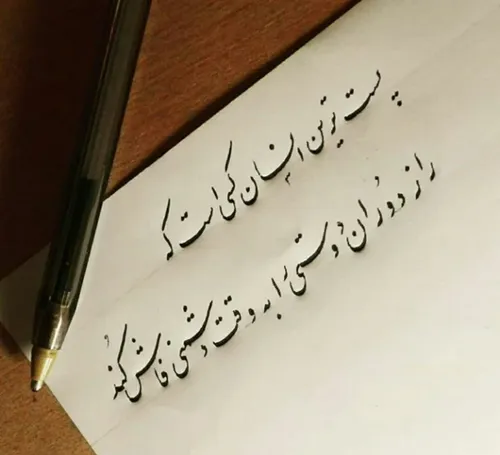 پست ترین انسان کسی است که
راز دوران دوستی را به وقت دشمنی فاش کند